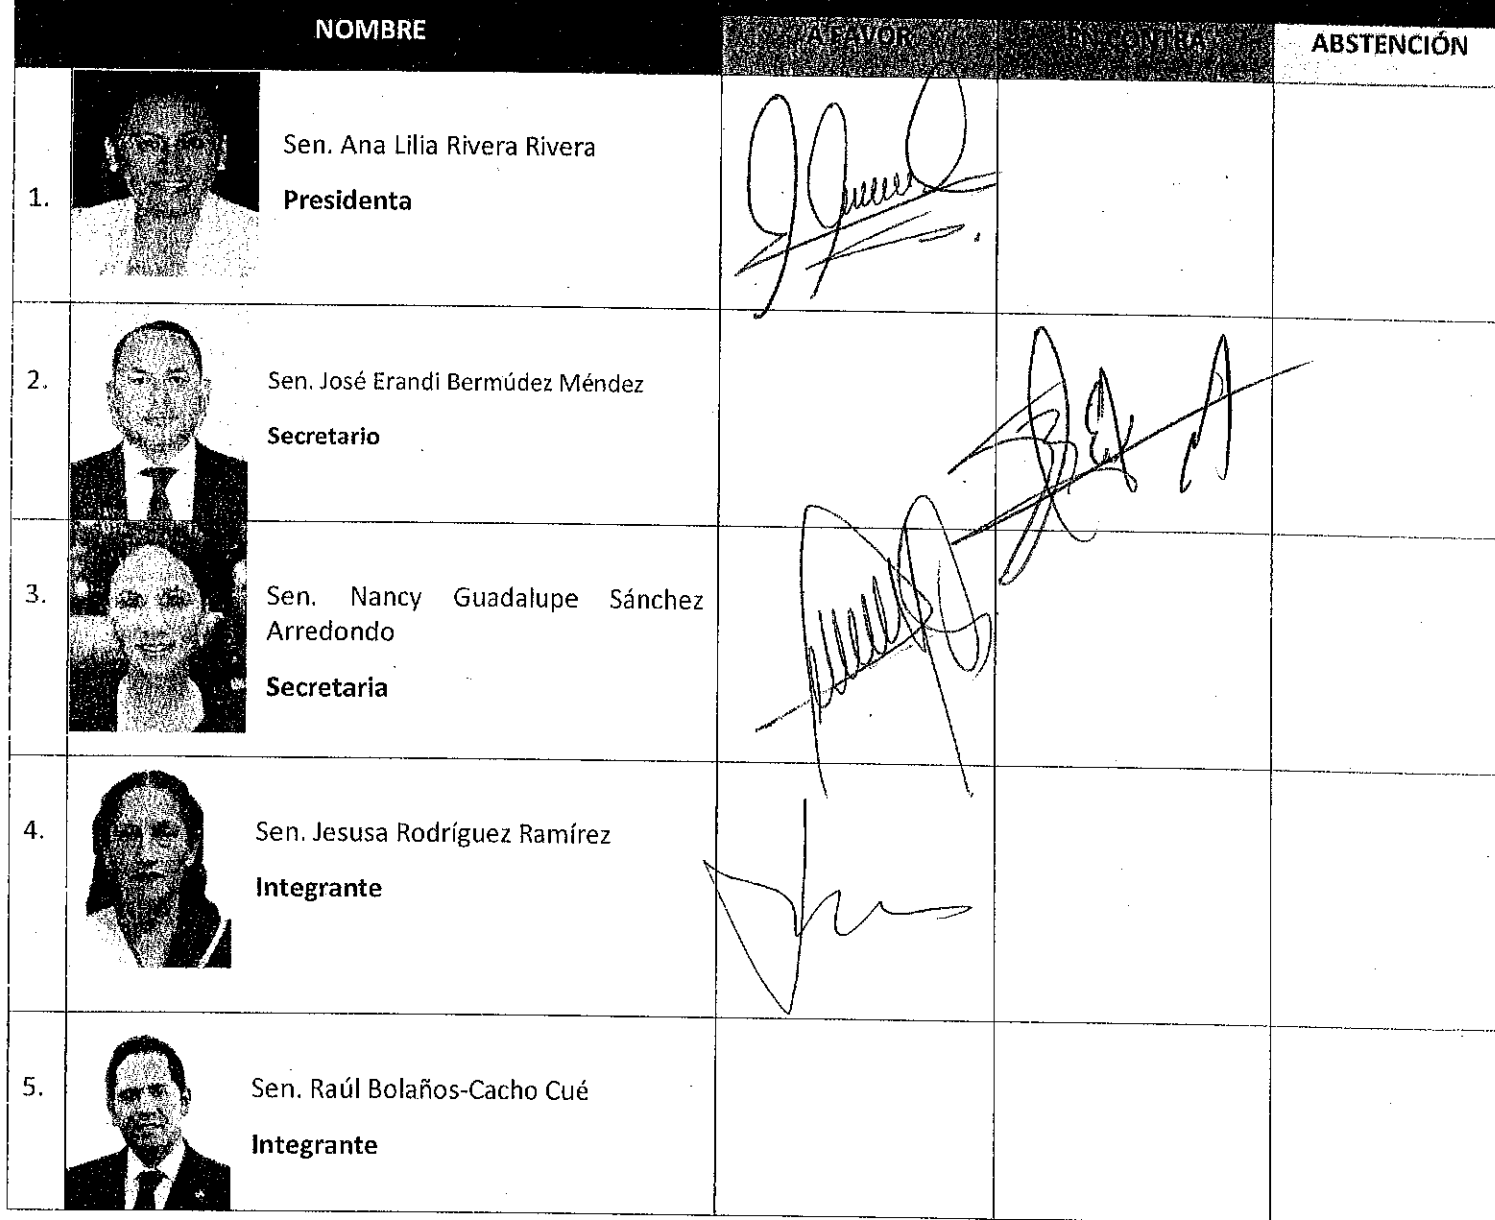 NOMBRE A FAVOR EN CONTRA ABSTENCIÓN
Sen. Ana Lilia Rivera Rivera
1. Presidenta
2. Sen. José Erandi Bermúdez Méndez
Secretario
3. Sen. Nancy Guadalupe Sánchez
Arredondo
Secretaria
4. Sen. Jesusa Rodríguez Ramírez
Integrante
5. Sen. Raúl Bolaños-Cacho Cué
Integrante